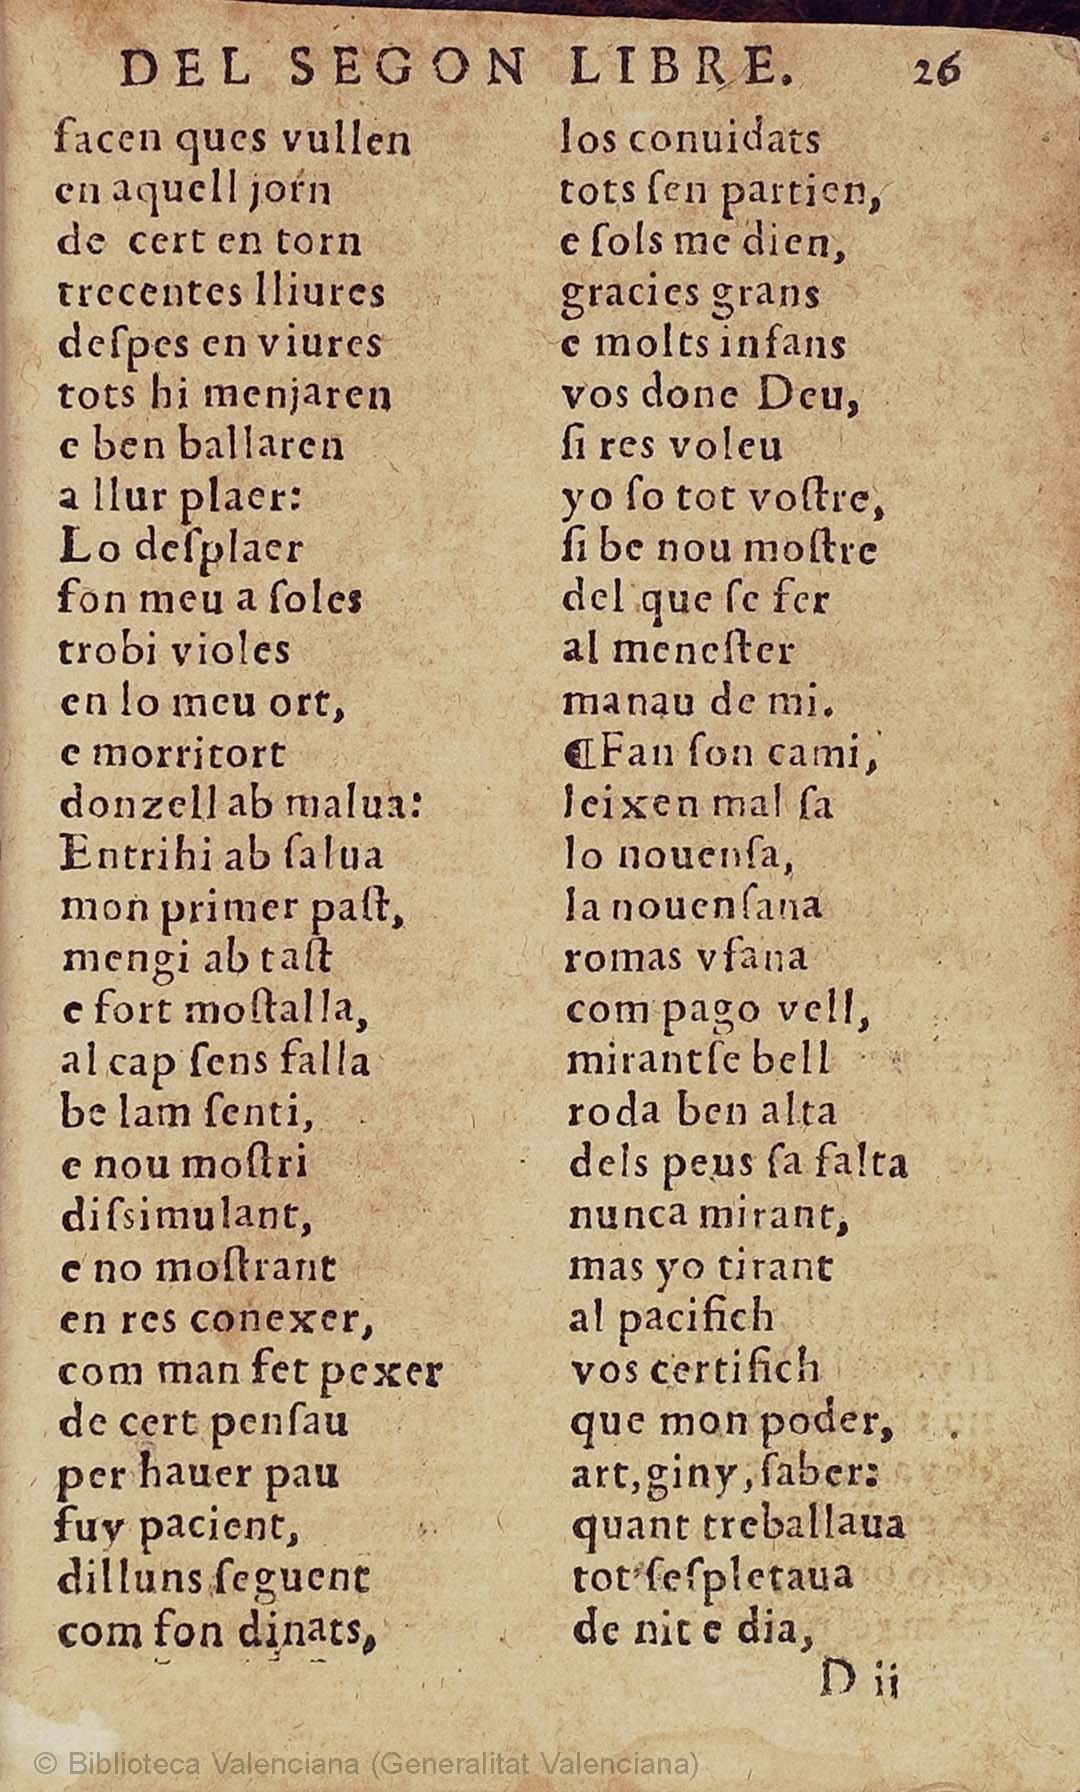 DEL SEGON LIBRE. 26
facen ques vullen
en aquell jorn
de cert en torn
trecentes lliures
deſpes en viures
tots hi menjaren
e ben ballaren
a llur plaer:
Lo deſplaer
fon meu a ſoles
trobi violes
en lo meu ort,
e morritort
donzell ab malua:
Entrihi ab ſalua
mon primer paſt,
mengi ab taſt
e fort moſtalla,
al cap ſens falla
be lam ſenti,
e nou moſtri
diſsimulant,
e no moſtrant
en res conexer,
com man fet pexer
de cert penſau
per hauer pau
fuy pacient,
dilluns ſeguent
com fon dinats,
los conuidats
tots ſen partien,
e ſols me dien,
gracies grans
e molts infans
vos done Deu,
ſi res voleu
yo ſo tot voſtre,
ſi be nou moſtre
del que ſe fer
al meneſter
manau de mi.
¶Fan ſon cami,
leixen mal ſa
lo nouenſa,
la nouenſana
romas vfana
com pago vell,
mirantſe bell
roda ben alta
dels peus ſa falta
nunca mirant,
mas yo tirant
al pacifich
vos certifich
que mon poder,
art,giny,ſaber:
quant treballaua
tot ſeſpletaua
de nit e dia,
D ii
© Biblioteca Valenciana (Generalitat Valenciana)